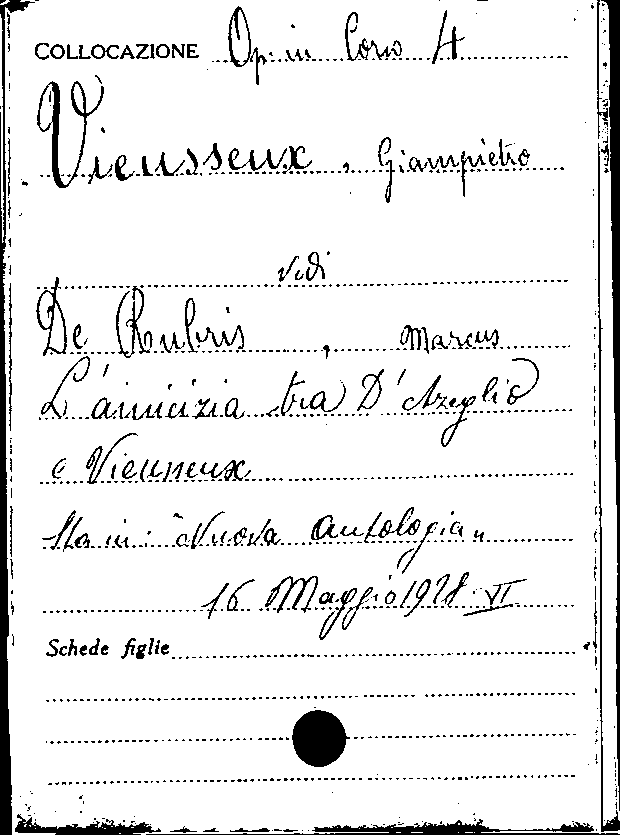 COLLOCAZIONE Op. in Corso 4
Vieusseux, Giampietro
vedi
De Rubris, Marcus
L'amicizia tra D'Azeglio
e Vieusseux
Sta in: "Nuova Antologia"
16 Maggio 1928 VI
Schede figlie